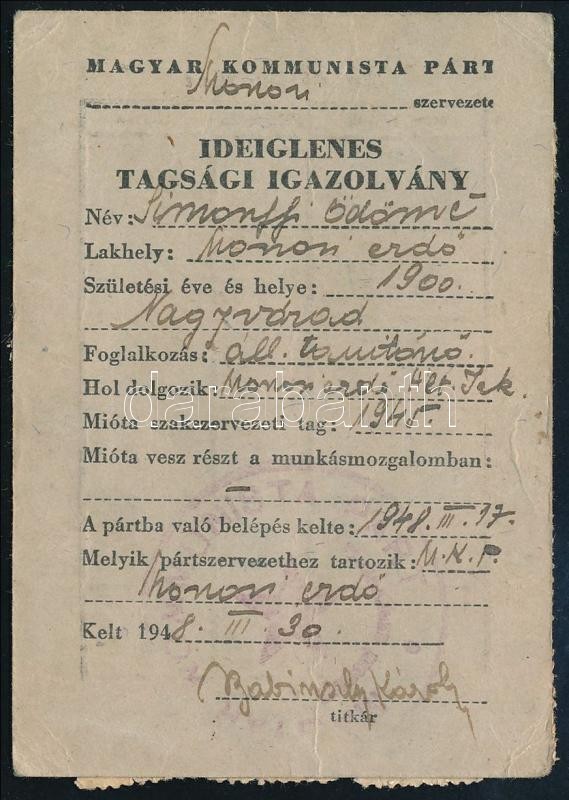 MAGYAR KOMMUNISTA PÁRT
Monori szervezete
IDEIGLENES
TAGSÁGI IGAZOLVÁNY
Név: Simonffi Ödömé
Lakhely: Monori erdő
Születési éve és helye: 1900.
Nagyvárad
Foglalkozás: áll. tanítónő.
Hol dolgozik: Monori erdő Ált. Isk.
darabanth
Mióta szakszervezeti tag: 1945
Mióta vesz részt a munkásmozgalomban:
—
A pártba való belépés kelte: 1948. III. 17.
Melyik pártszervezethez tartozik: M.K.P.
Monori erdő
Kelt 1948. III 30.
Károly
titkár